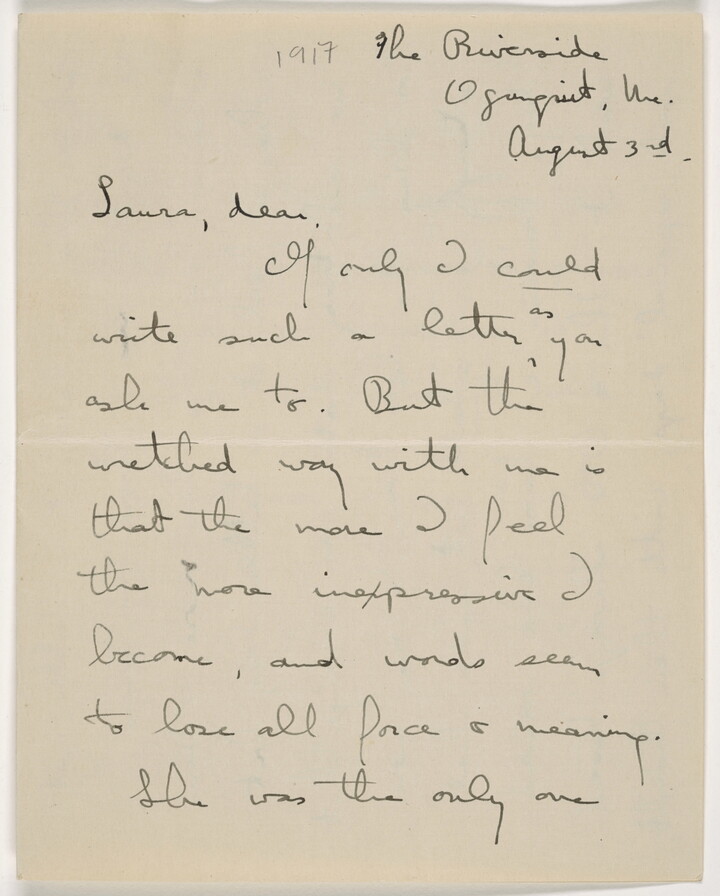 1917 The Riverside
Ogunquit, Me.
August 3rd.
Laura, dear,
If only I could
write such a letter as you
ask me to. But the
wretched way with me is
that the more I feel
the more inexpressive I
become, and words seem
to lose all force & meaning.
She was the only one